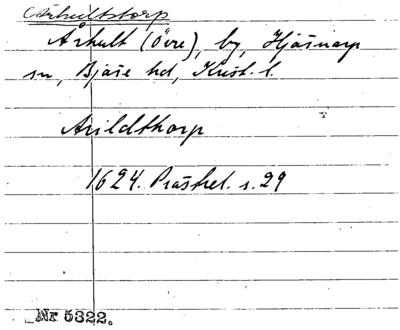 Århultstorp
Århult (Övre), by, Hjärnarp
sn, Bjäre hd, Krist. l.
Arildthorp
1624. Prästrel. s. 29
Nr 5322.